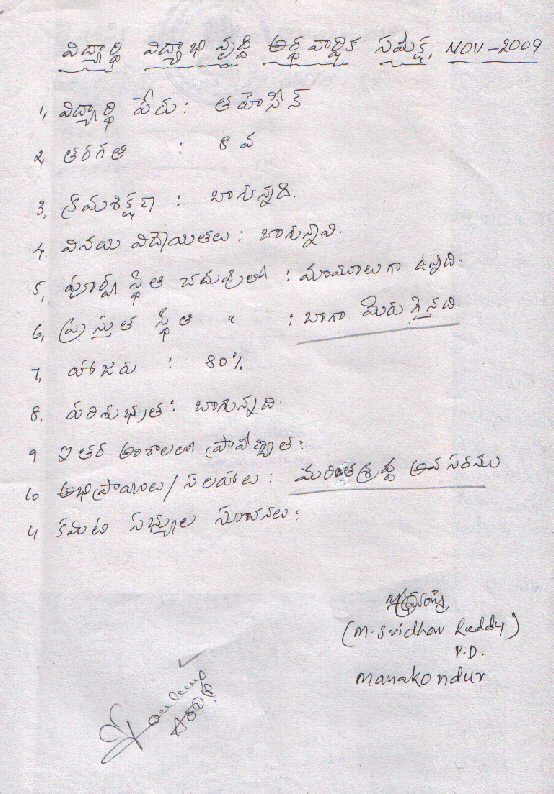 విద్యార్థి విద్యాభివృద్ధి అర్థవార్షిక సమీక్ష, NOV-2009
1, విద్యార్థి పేరు: తహెసీన్
2, తరగతి : 8 వ
3, క్రమశిక్షణ : బాగున్నది.
4. వినయ విధేయతలు: బాగున్నవి.
5, పూర్వ స్థితి చదువులో : మామూలుగా ఉన్నది.
6, ప్రస్తుత స్థితి " : బాగా మెరుగైనది
7, హాజరు : 80%
8. పరిశుభ్రత: బాగున్నది.
9 ఇతర అంశాలలో ప్రావీణ్యత:
10 అభిప్రాయాలు/సలహాలు: మరింత శ్రద్ధ అవసరము
11 కమిటి సభ్యుల సూచనలు:
(M. Sridhar Reddy)
P.D.
Manakondur